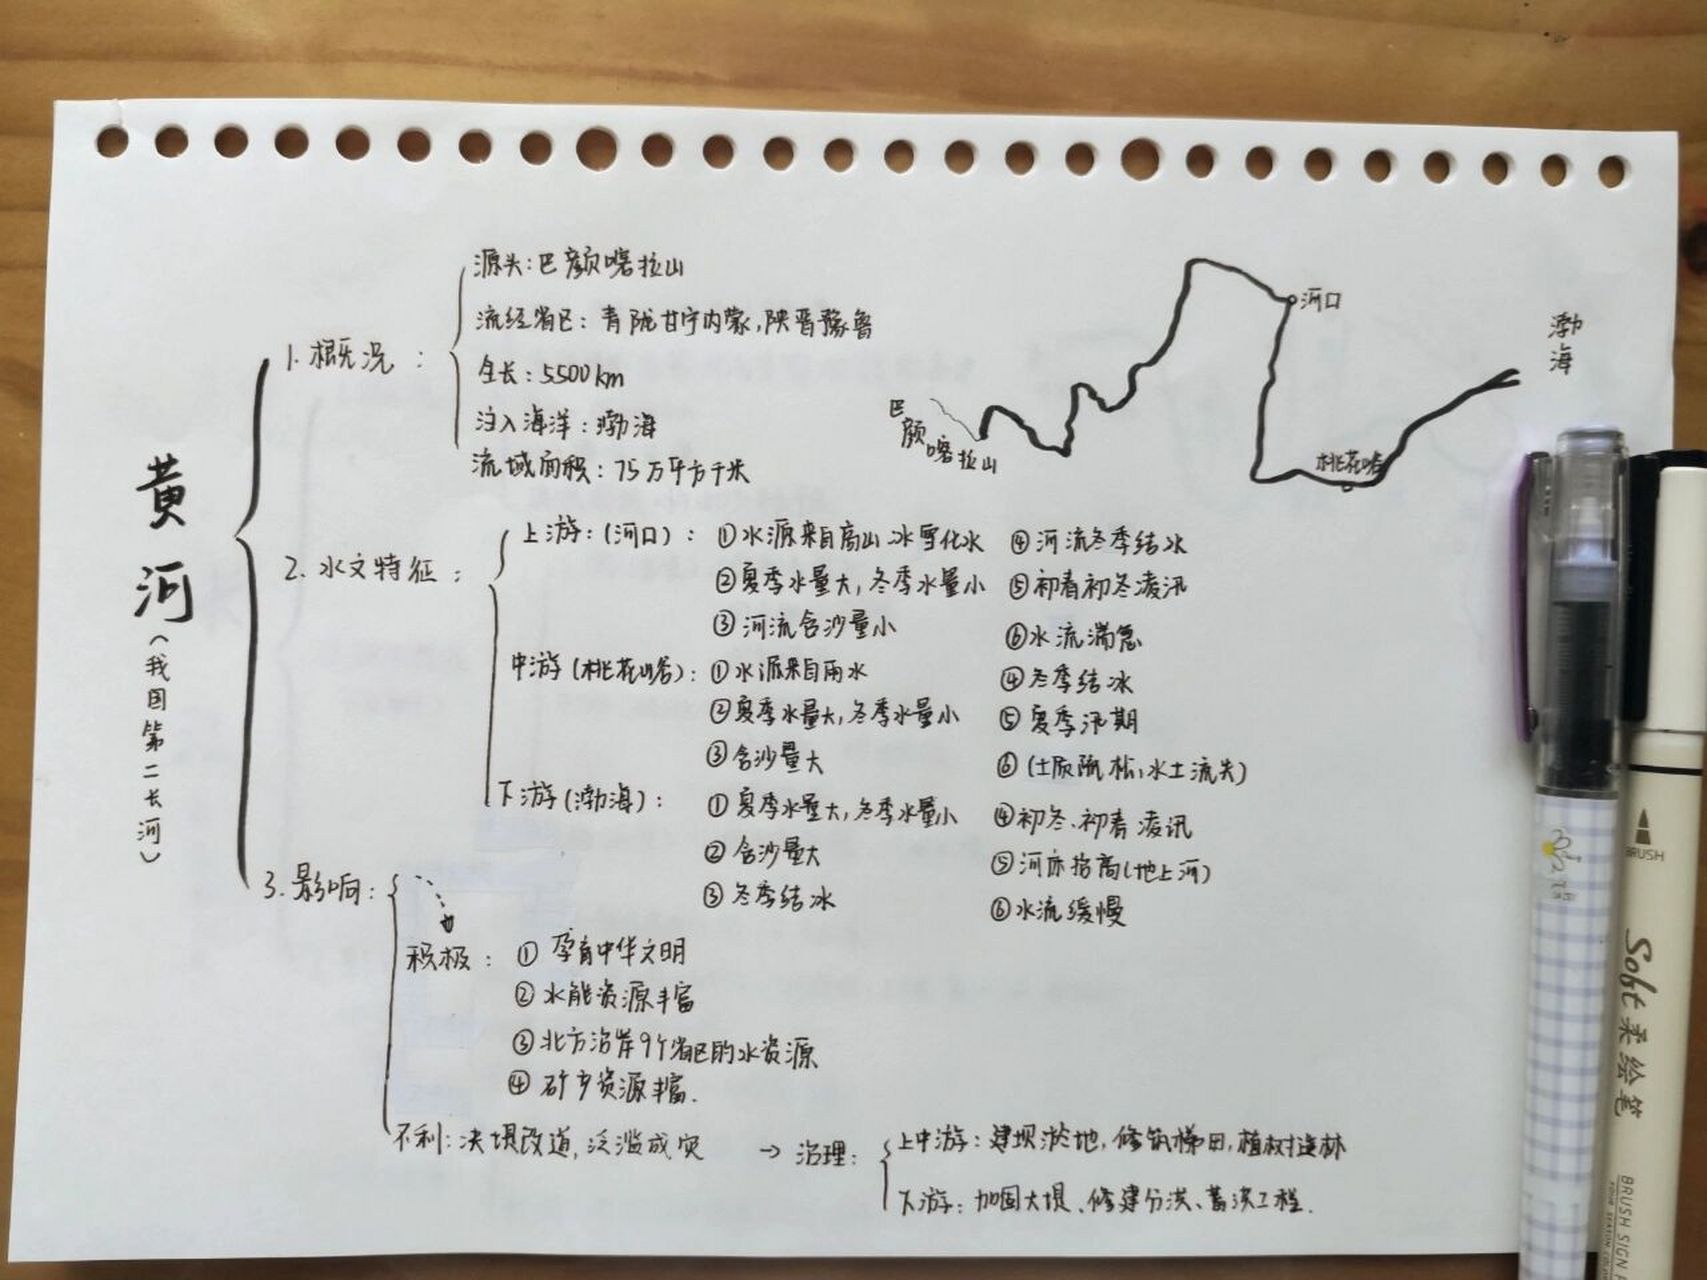 黄河(我国第二长河)
1. 概况:
源头:巴颜喀拉山
流经省区:青陇甘宁内蒙,陕晋豫鲁
全长:5500km
注入海洋:渤海
流域面积:75万平方千米
河口
渤海
巴颜喀拉山
桃花峪
2. 水文特征:
上游:(河口): ①水源来自高山冰雪化水 ④河流冬季结冰
②夏季水量大,冬季水量小 ⑤初春初冬凌汛
③河流含沙量小 ⑥水流湍急
中游(桃花峪): ①水源来自雨水 ④冬季结冰
②夏季水量大,冬季水量小 ⑤夏季汛期
③含沙量大 ⑥(土质疏松,水土流失)
下游(渤海): ①夏季水量大,冬季水量小 ④初冬、初春凌汛
②含沙量大 ⑤河床抬高(地上河)
③冬季结冰 ⑥水流缓慢
3. 影响:
积极: ①孕育中华文明
②水能资源丰富
③北方沿岸9个省区的水资源
④矿产资源丰富.
不利:决堤改道,泛滥成灾 → 治理:
上中游:建坝淤地,修筑梯田,植树造林
下游:加固大堤、修建分洪、蓄洪工程.
BRUSH
Soft柔绘笔
BRUSH SIGN